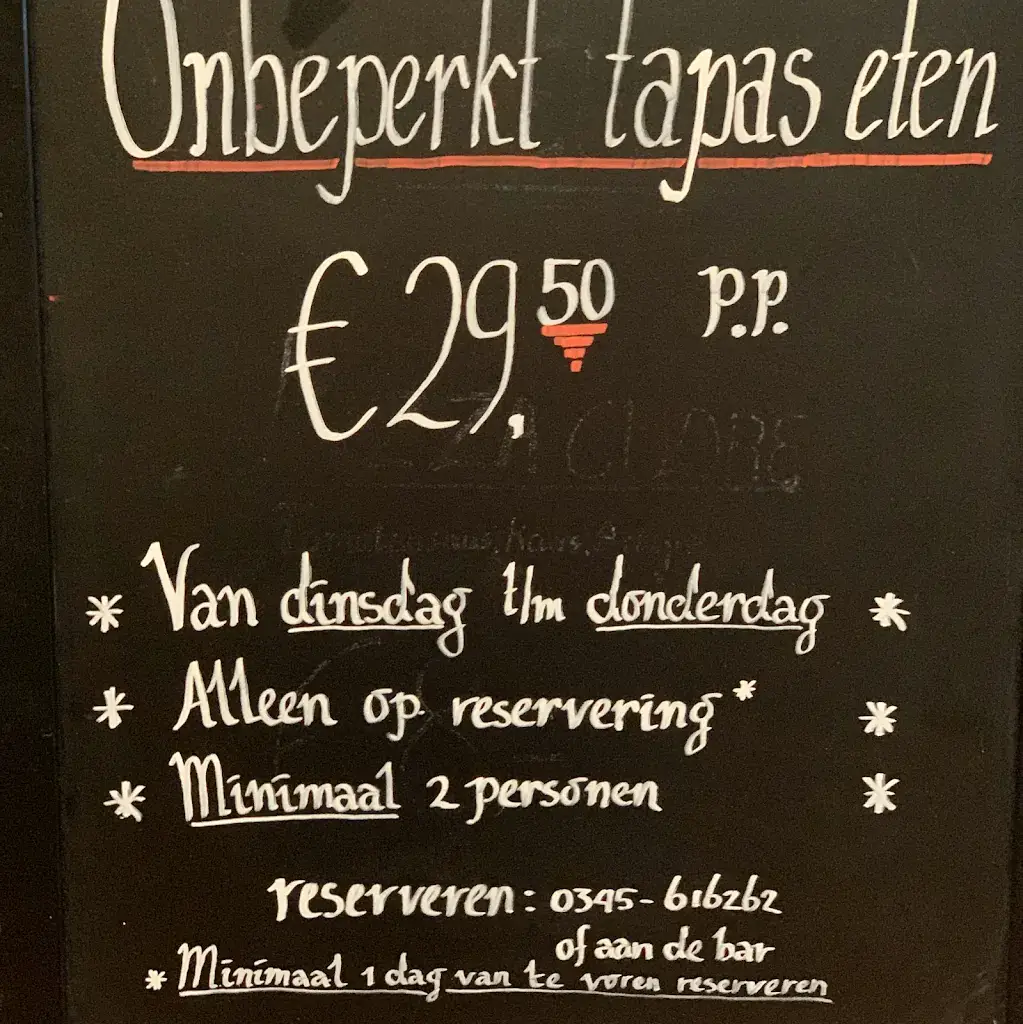 Onbeperkt tapas eten
€29,50 p.p.
* Van dinsdag t/m donderdag *
* Alleen op reservering* *
* Minimaal 2 personen *
reserveren: 0345-616262
of aan de bar
* Minimaal 1 dag van te voren reserveren